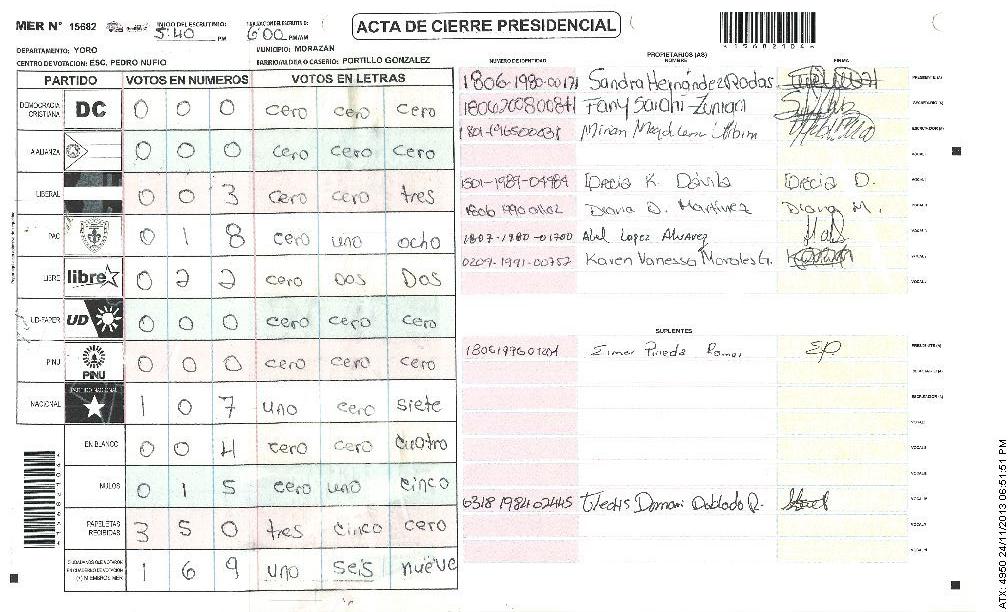 MER N° 15682 INICIO DEL ESCRUTINIO: 5:40 PM 6:00 PM/AM
ACTA DE CIERRE PRESIDENCIAL
DEPARTAMENTO: YORO MUNICIPIO: MORAZAN
CENTRO DE VOTACION: ESC. PEDRO NUFIO BARRIO/ALDEA O CASERIO: PORTILLO GONZALEZ
PARTIDO VOTOS EN NUMEROS VOTOS EN LETRAS
DEMOCRACIA CRISTIANA DC 0 0 0 cero cero cero
ALIANZA 0 0 0 cero cero cero
LIBERAL 0 0 3 cero cero tres
PAC 0 1 8 cero uno ocho
LIBRE libre 0 2 2 cero Dos Dos
UD-FAPER UD 0 0 0 cero cero cero
PINU PINU 0 0 0 cero cero cero
NACIONAL PARTIDO NACIONAL 1 0 7 uno cero siete
EN BLANCO 0 0 4 cero cero cuatro
NULOS 0 1 5 cero uno cinco
PAPELETAS RECIBIDAS 3 5 0 tres cinco cero
CIUDADANOS QUE VOTARON EN CUADERNO DE VOTACION (+) MIEMBROS MER 1 6 9 uno seis nueve
PROPIETARIOS (AS)
NUMERO DE IDENTIDAD NOMBRE FIRMA
1806-1980-00171 Sandra Hernández Rodas PRESIDENTE (A)
Fany SECRETARIO (A)
Mirian ESCRUTADOR (A)
VOCAL I
1501-1989-04984 K. Dávila D.
Diana D. Martinez Diana M.
1807-1980-01700 Abel Lopez Alvarez
0209-1991-00757 Karen Vanessa Morales G.
SUPLENTES
Pineda EP PRESIDENTE (A)
SECRETARIO (A)
ESCRUTADOR (A)
0318198402445
ATX: 4950 24/11/2013 06:51:51 PM